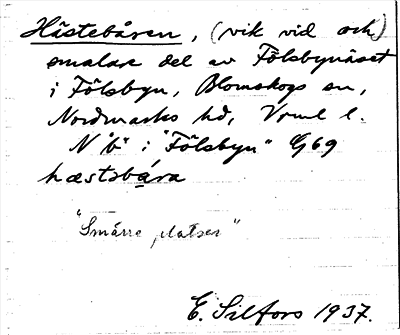 Hästebåren, (vik vid och)
smalare del av Fölsbynäset
i Fölsbyn, Blomskogs sn,
Nordmarks hd, Vrml l.
N "b" i "Fölsbyn" G69
hæstsbåra
"Smärre platser"
E. Silfors 1937.